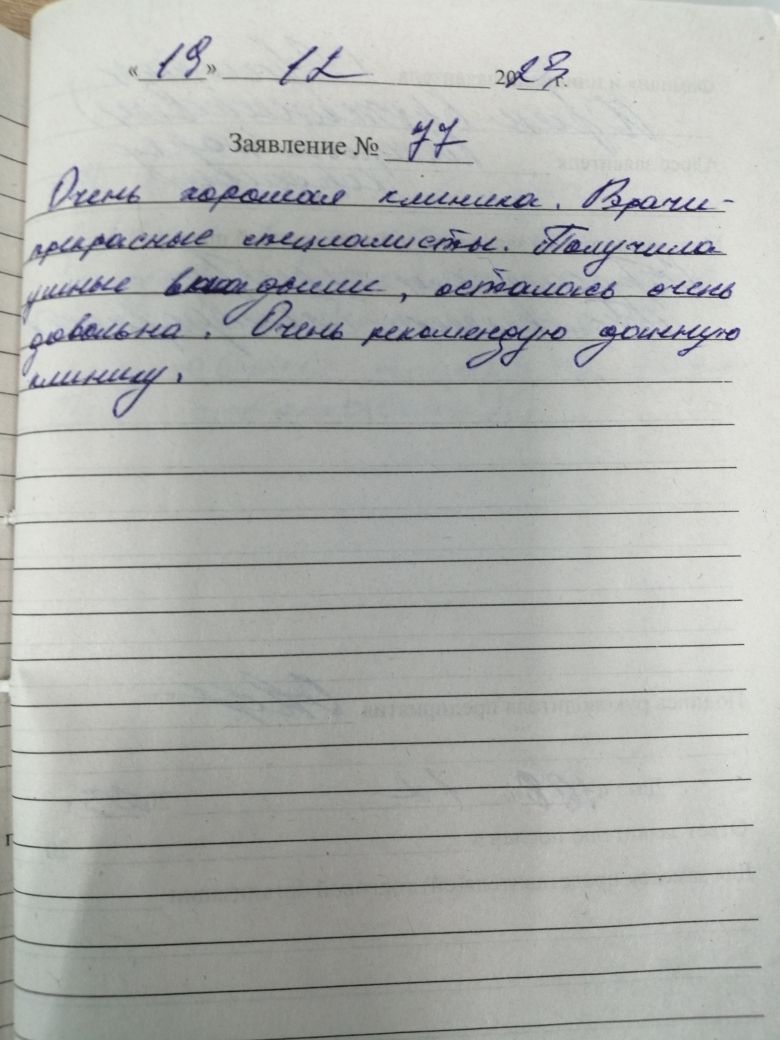 « 19 » 12 2023 г.
Заявление № 77
Очень хорошая клиника. Врачи-
прекрасные специалисты. Получила
ушные вкладыши, осталась очень
довольна. Очень рекомендую данную
клинику.